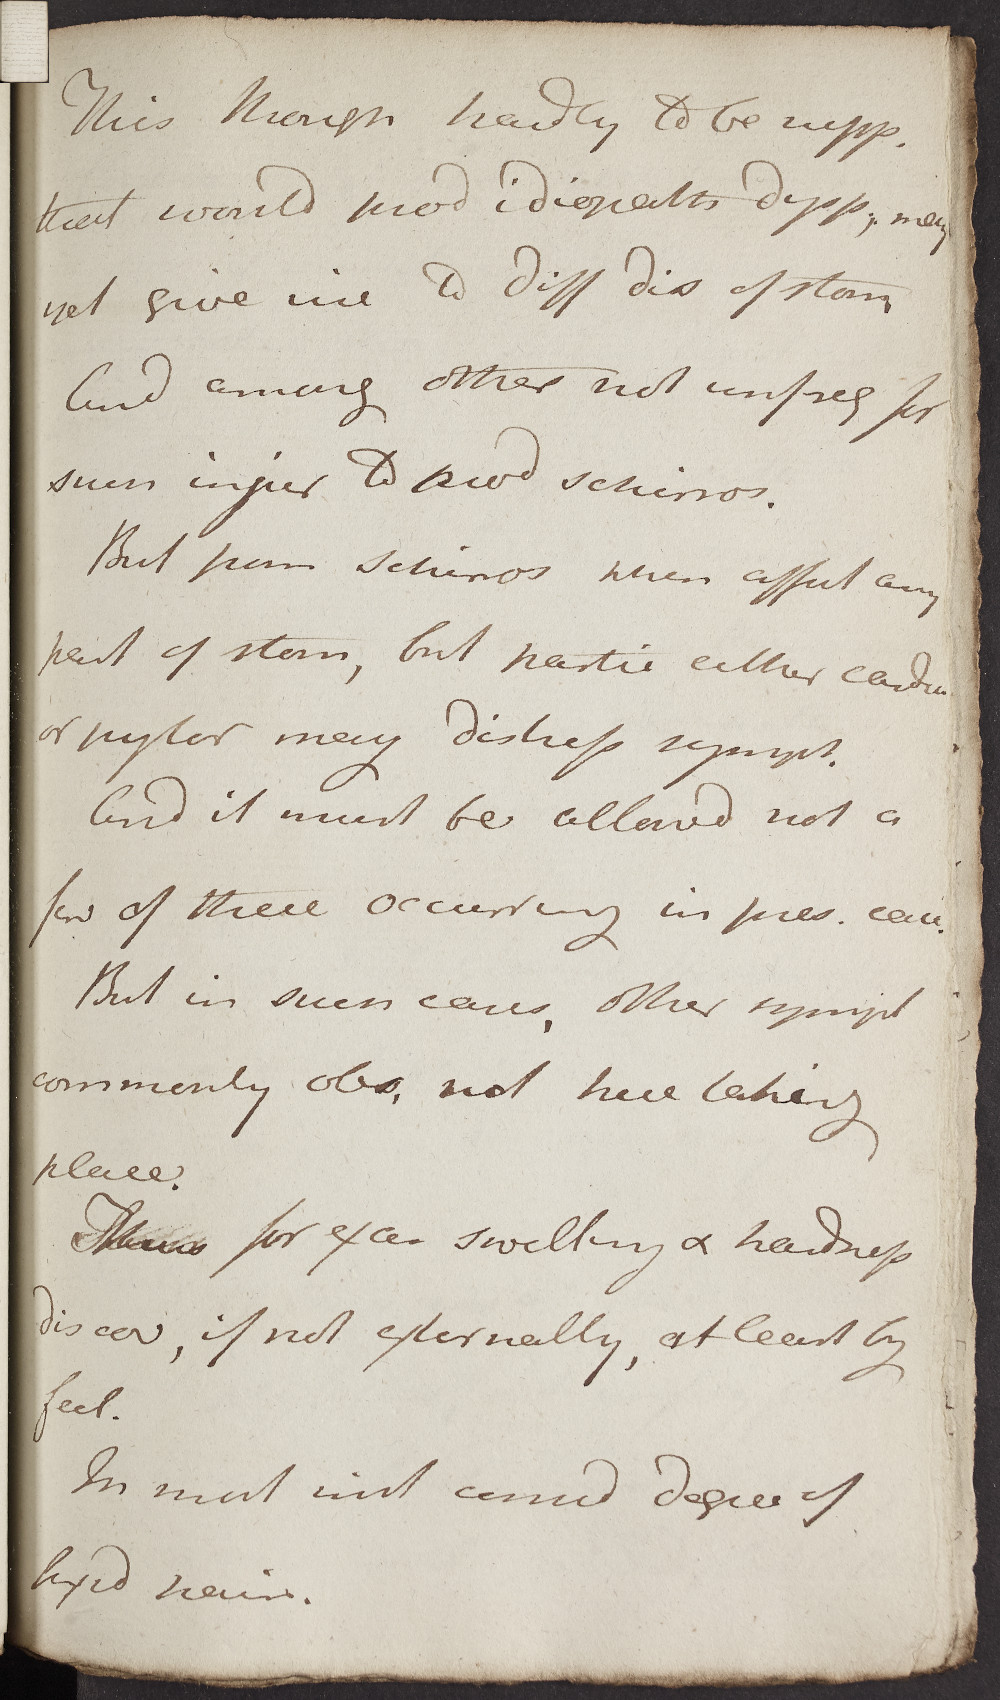 This though hardly to be supp.
that would prod idiopath dysp; may
yet give rise to diff dis of stom
And among other not unfreq for
such injur to prod schirros.
But from schirros when affect any
part of stom, but partic either cardia
or pylor many distress sympt.
And it must be allowed not a
few of these occurring in pres. case.
But in such cases, other sympt
commonly obs, not here taking
place.
for exam swelling & hardness
discov, if not externally, at least by
feel.
In most inst consid degree of
fixed pain.